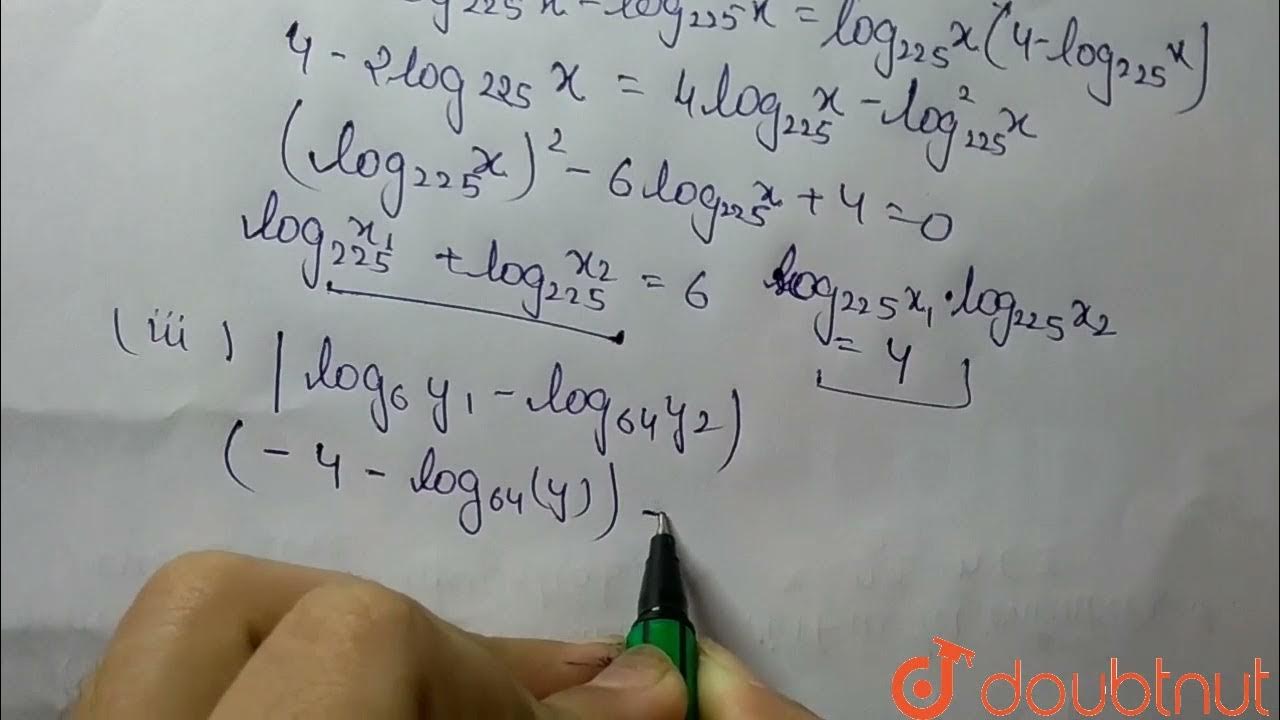 log₂₂₅ x - log₂₂₅ x = log₂₂₅ x (4 - log₂₂₅ x)
4 - 2 log 225 x = 4 log₂₂₅ x - log²₂₂₅ x
(log₂₂₅ x)² - 6 log₂₂₅ x + 4 = 0
log₂₂₅ x₁ + log₂₂₅ x₂ = 6 log₂₂₅ x₁ · log₂₂₅ x₂
= 4
(iii) | log₆ y₁ - log₆₄ y₂)
(- 4 - log₆₄ (y)) -
doubtnut